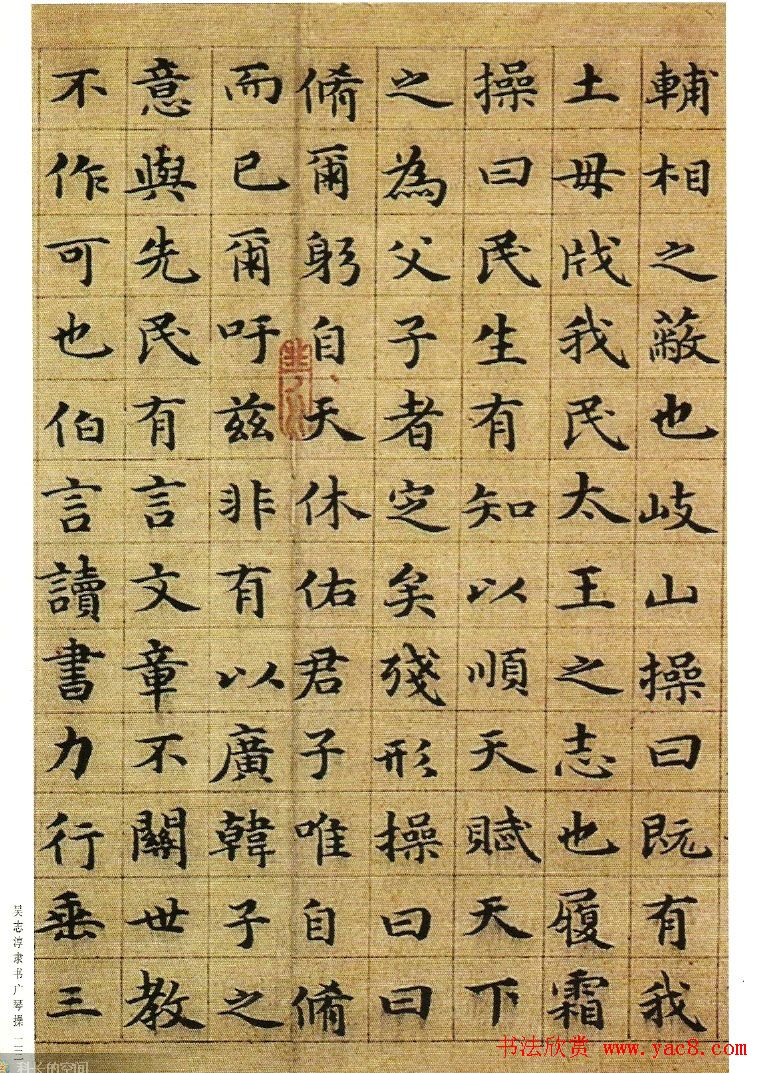 輔相之蔽也岐山操曰既有我
土毋戕我民太王之志也履霜
操曰民生有知以順天賦天下
之為父子者定矣殘形操曰曰
脩爾躬自天休佑君子唯自脩
而已爾吁茲非有以廣韓子之
意與先民有言文章不關世教
不作可也伯言讀書力行垂三
吴志淳隶书广琴操
科长的空间
书法欣赏 www.yac8.com